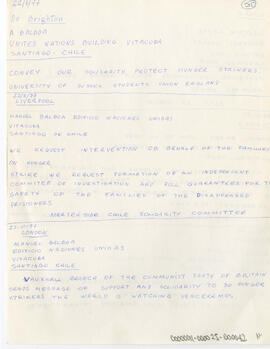 22/6/77
De Brighton
A BALBOA
UNITED NATIONS BUILDING VITACURA
SANTIAGO - CHILE
CONVEY OUR SOLIDARITY PROTECT HUNGER STRIKERS.
UNIVERSITY OF SUSSEX STUDENTS UNION ENGLAND
LIVERPOOL
MANUEL BALBOA EDIFICIO NACIONES UNIDAS
VITACURA
SANTIAGO DE CHILE
WE REQUEST INTERVENTION ON BEHALF OF THE FAMILIES
ON HUNGER
STRIKE. WE REQUEST FORMATION OF AN INDEPENDENT
COMMITEE OF INVESTIGATION AND FULL GUARANTEES FOR THE
SAFETY OF THE FAMILIES OF THE DISAPPEARED
PRISONERS
MERSEYSIDE CHILE SOLIDARITY COMMITTEE
LONDON
MANUEL BALBOA
EDIFICIO NACIONES UNIDAS
VITACURA
SANTIAGO CHILE
VAUXHALL BRANCH OF THE COMMUNIST PARTY OF BRITAIN
SENDS MESSAGE OF SUPPORT AND SOLIDARITY TO 26 HUNGER
STRIKERS THE WORLD IS WATCHING VENCEREMOS